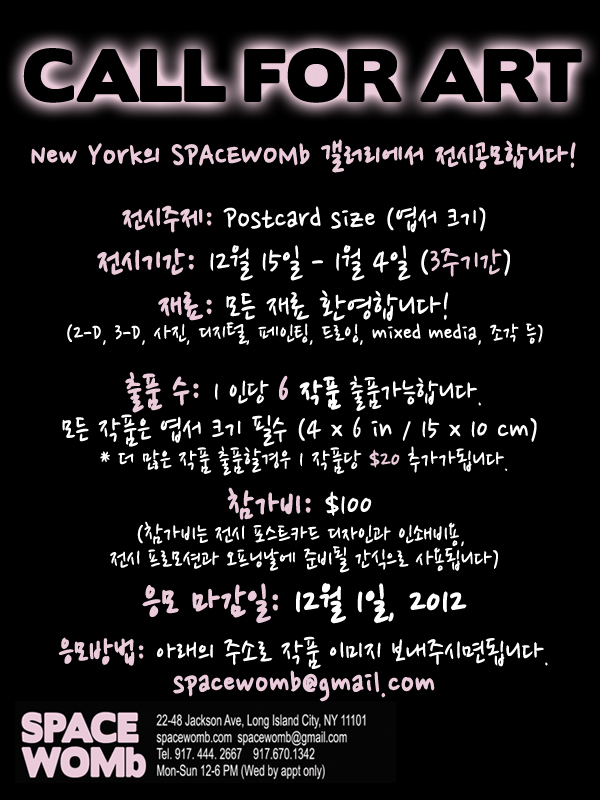 CALL FOR ART
New York의 SPACEWOMb 갤러리에서 전시공모합니다!
전시주제: Postcard size (엽서 크기)
전시기간: 12월 15일 - 1월 4일 (3주기간)
재료: 모든 재료 환영합니다!
(2-D, 3-D, 사진, 디지털, 페인팅, 드로잉, mixed media, 조각 등)
출품 수: 1 인당 6 작품 출품가능합니다.
모든 작품은 엽서 크기 필수 (4 x 6 in / 15 x 10 cm)
* 더 많은 작품 출품할경우 1 작품당 $20 추가가됩니다.
참가비: $100
(참가비는 전시 포스트카드 디자인과 인쇄비용,
전시 프로모션과 오프닝날에 준비될 간식으로 사용됩니다)
응모 마감일: 12월 1일, 2012
응모방법: 아래의 주소로 작품 이미지 보내주시면됩니다.
spacewomb@gmail.com
SPACE
WOMb
22-48 Jackson Ave, Long Island City, NY 11101
spacewomb.com spacewomb@gmail.com
Tel. 917. 444. 2667 917.670.1342
Mon-Sun 12-6 PM (Wed by appt only)